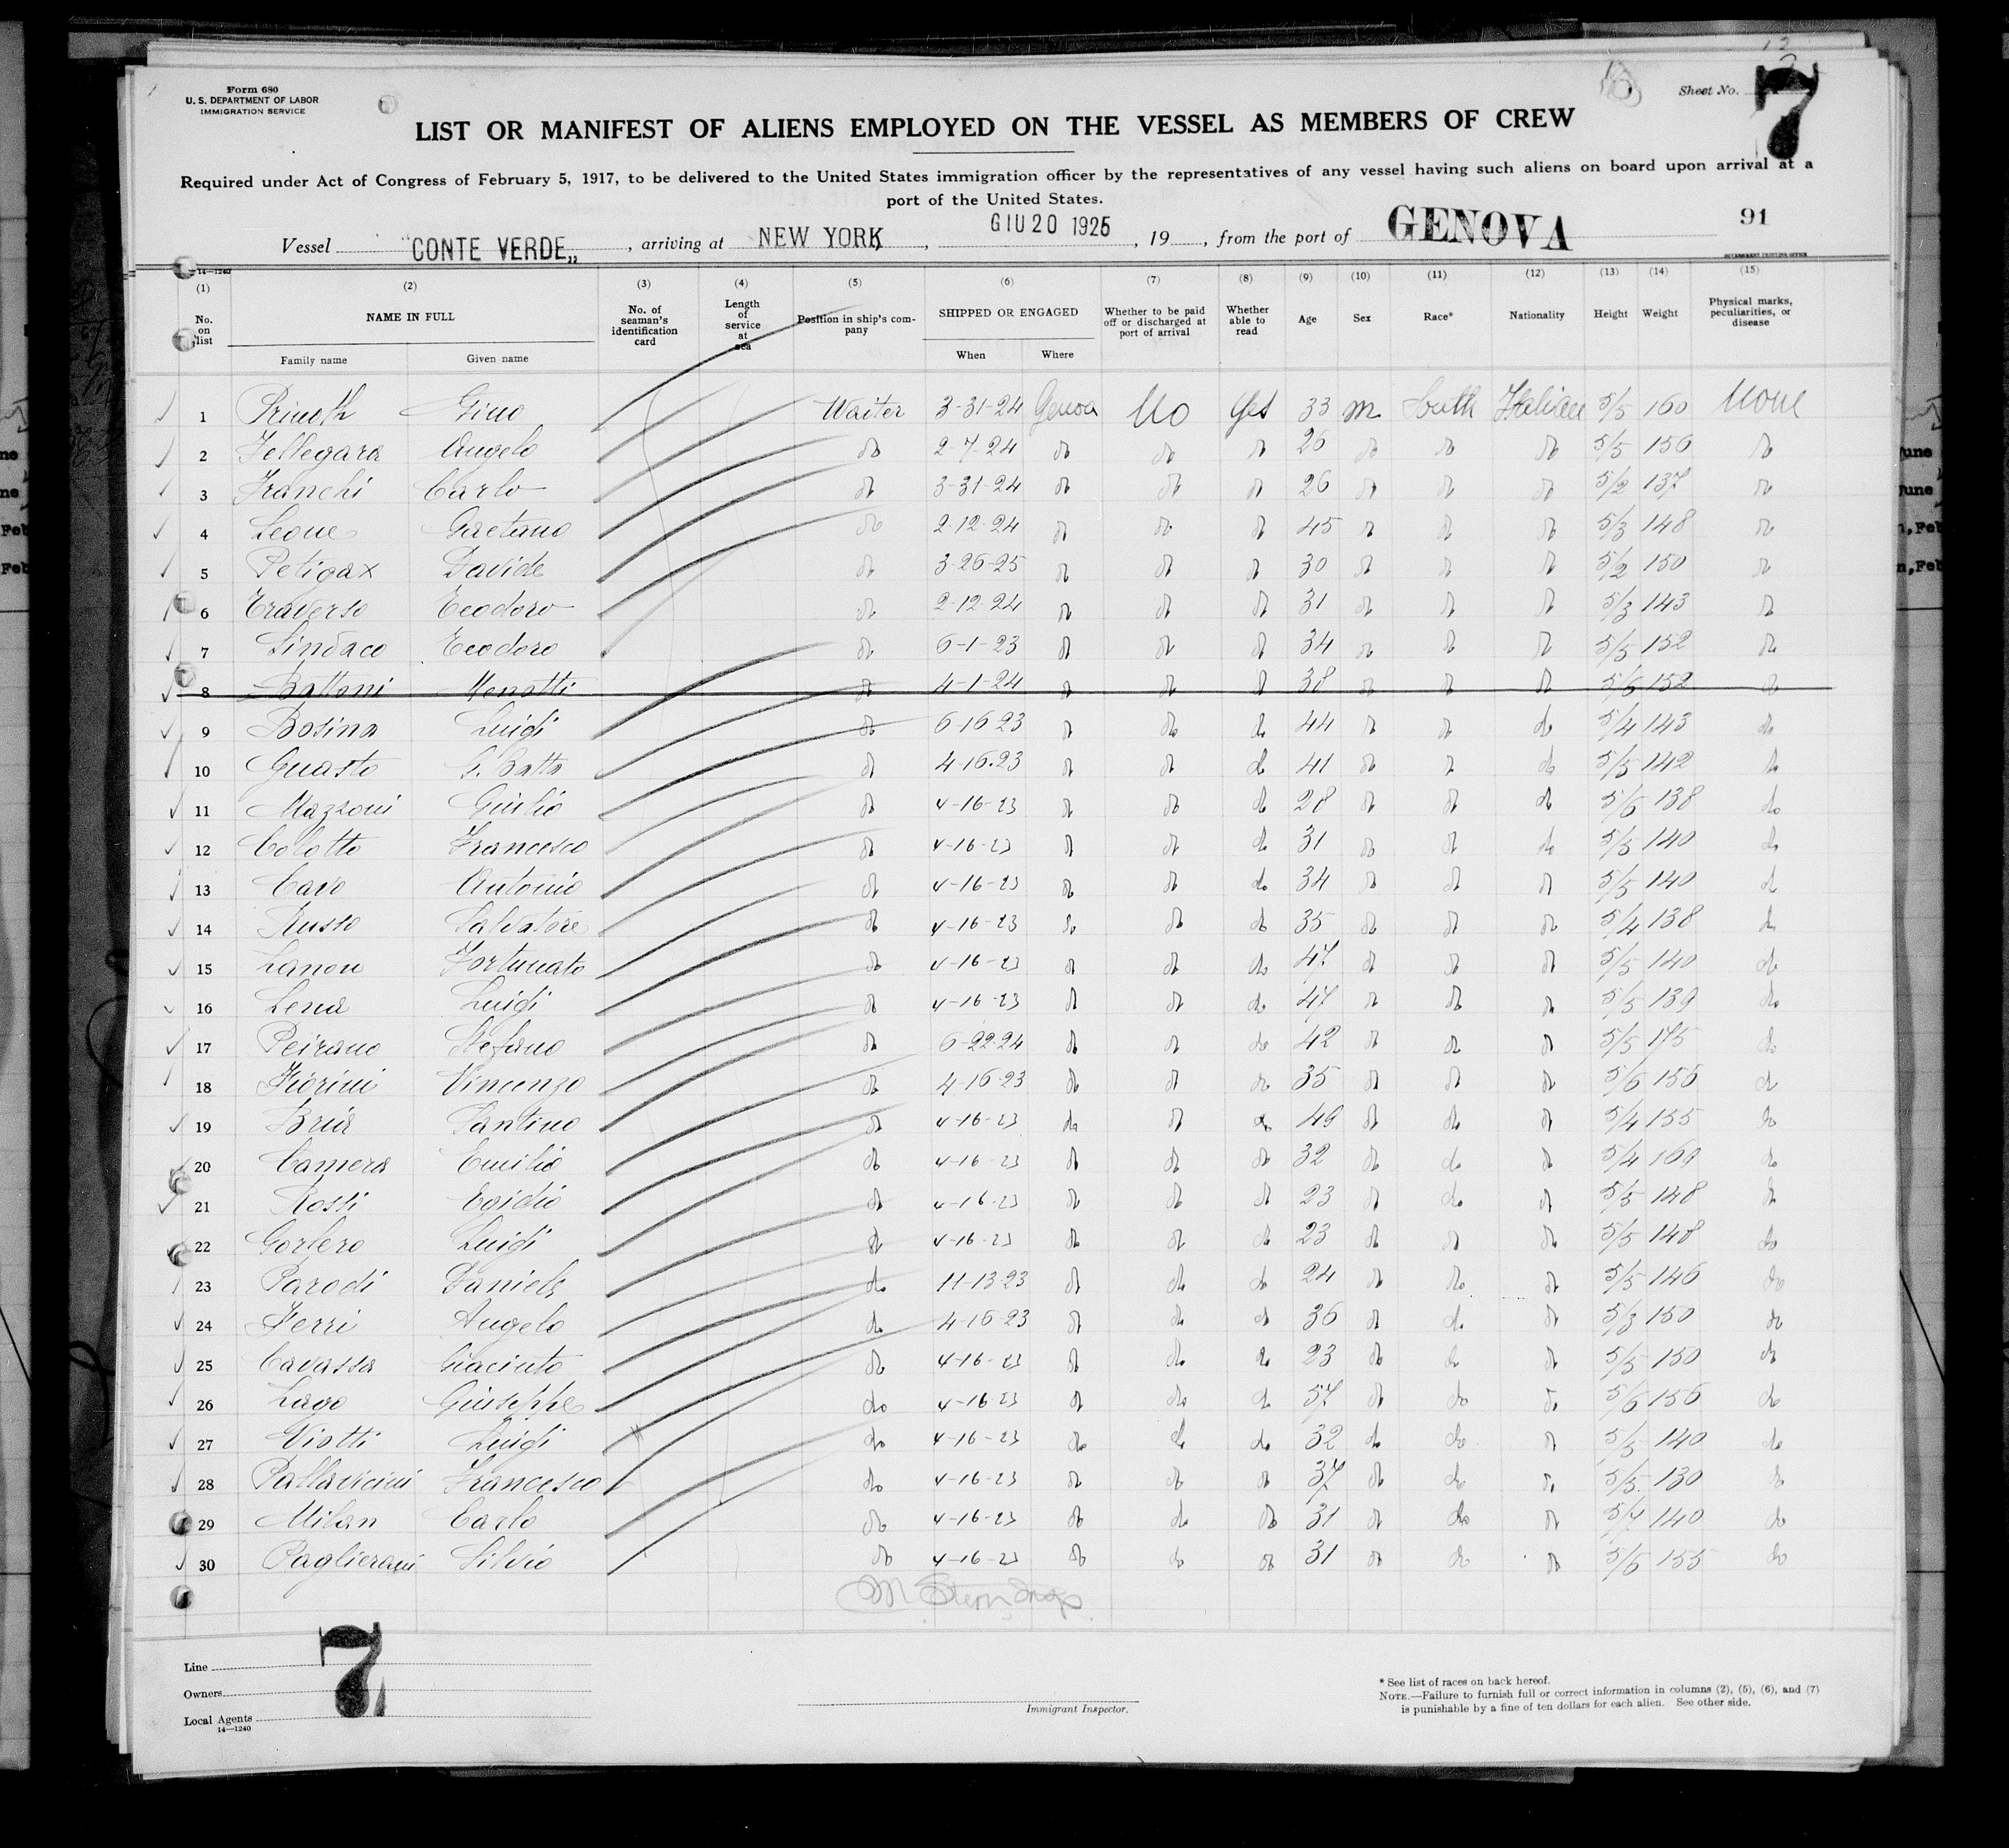 Form 680
U. S. DEPARTMENT OF LABOR
IMMIGRATION SERVICE
Sheet No. 7
LIST OR MANIFEST OF ALIENS EMPLOYED ON THE VESSEL AS MEMBERS OF CREW
Required under Act of Congress of February 5, 1917, to be delivered to the United States immigration officer by the representatives of any vessel having such aliens on board upon arrival at a
port of the United States.
91
Vessel "CONTE VERDE,, , arriving at NEW YORK , GIU 20 1925 , 19 , from the port of GENOVA
14—1240
(1) (2) (3) (4) (5) (6) (7) (8) (9) (10) (11) (12) (13) (14) (15)
No. on list NAME IN FULL No. of seaman's identification card Length of service at sea Position in ship's company SHIPPED OR ENGAGED Whether to be paid off or discharged at port of arrival Whether able to read Age Sex Race* Nationality Height Weight Physical marks, peculiarities, or disease
Family name Given name When Where
1 Prinoth Gino Waiter 3-31-24 Genoa No Yes 33 m South Italian 5/5 160 None
2 Fellegara Angelo do 2-7-24 do do do 26 do do do 5/5 156 do
3 Franchi Carlo do 3-31-24 do do do 26 do do do 5/2 137 do
4 Leone Gaetano do 2-12-24 do do do 45 do do do 5/3 148 do
5 Petigax Davide do 3-26-25 do do do 30 do do do 5/2 150 do
6 Traverso Teodoro do 2-12-24 do do do 31 do do do 5/3 143 do
7 Sindaco Teodoro do 6-1-23 do do do 34 do do do 5/5 152 do
8 Battoni Menotti do 4-1-24 do do do 38 do do do 5/6 152 do
9 Bosina Luigi do 6-16-23 do do do 44 do do do 5/4 143 do
10 Guasto G. Batta do 4-16-23 do do do 41 do do do 5/5 142 do
11 Mazzoni Giulio do 4-16-23 do do do 28 do do do 5/6 138 do
12 Colotto Francesco do 4-16-23 do do do 31 do do do 5/5 140 do
13 Cavo Antonio do 4-16-23 do do do 34 do do do 5/5 140 do
14 Russo Salvatore do 4-16-23 do do do 35 do do do 5/4 138 do
15 Zanou Fortunato do 4-16-23 do do do 47 do do do 5/5 140 do
16 Lena Luigi do 4-16-23 do do do 47 do do do 5/5 139 do
17 Peirano Stefano do 6-22-24 do do do 42 do do do 5/5 175 do
18 Fiorini Vincenzo do 4-16-23 do do do 35 do do do 5/6 155 do
19 Bria Santino do 4-16-23 do do do 49 do do do 5/4 155 do
20 Camera Emilio do 4-16-23 do do do 32 do do do 5/4 169 do
21 Rossi Egidio do 4-16-23 do do do 23 do do do 5/5 148 do
22 Gorlero Luigi do 4-16-23 do do do 23 do do do 5/5 148 do
23 Parodi Daniele do 11-13-23 do do do 24 do do do 5/5 146 do
24 Ferri Angelo do 4-16-23 do do do 36 do do do 5/3 150 do
25 Cavassa Giacinto do 4-16-23 do do do 23 do do do 5/5 150 do
26 Lago Giuseppe do 4-16-23 do do do 57 do do do 5/6 156 do
27 Viotti Luigi do 4-16-23 do do do 32 do do do 5/5 140 do
28 Pallavicini Francesco do 4-16-23 do do do 37 do do do 5/5 130 do
29 Milan Carlo do 4-16-23 do do do 31 do do do 5/7 140 do
30 Paglierani Silvio do 4-16-23 do do do 31 do do do 5/6 155 do
Line
Owners
Local Agents
14—1240
7
Immigrant Inspector.
* See list of races on back hereof.
NOTE.—Failure to furnish full or correct information in columns (2), (5), (6), and (7)
is punishable by a fine of ten dollars for each alien. See other side.